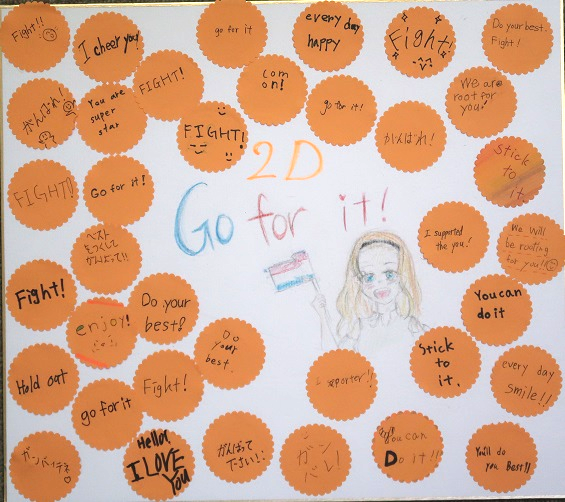 Fight!!
I cheer you!
go for it
every day
happy
Fight!
Do your best.
Fight!
がんばれ!
You are
super
star
FIGHT!
com
on!
go for it!
We are
root for
you!
FIGHT!
がんばれ!
Stick
to
it.
FIGHT!
Go for it!
2D
Go for it!
ベスト
をつくして
がんばって!!
I supported
the you!
We will
be rooting
for you!!
Fight!
enjoy!
Do your
best!
Do
your
best.
You can
do it
Hold out
go for it
Fight!
I supporter!!
Stick
to
it.
every day
smile!!
ガンバッテネ
Hello,
I LOVE
You
がんばって
下さい!
ガン
バレ!
You can
Do it!!
You'll do
you Best!!